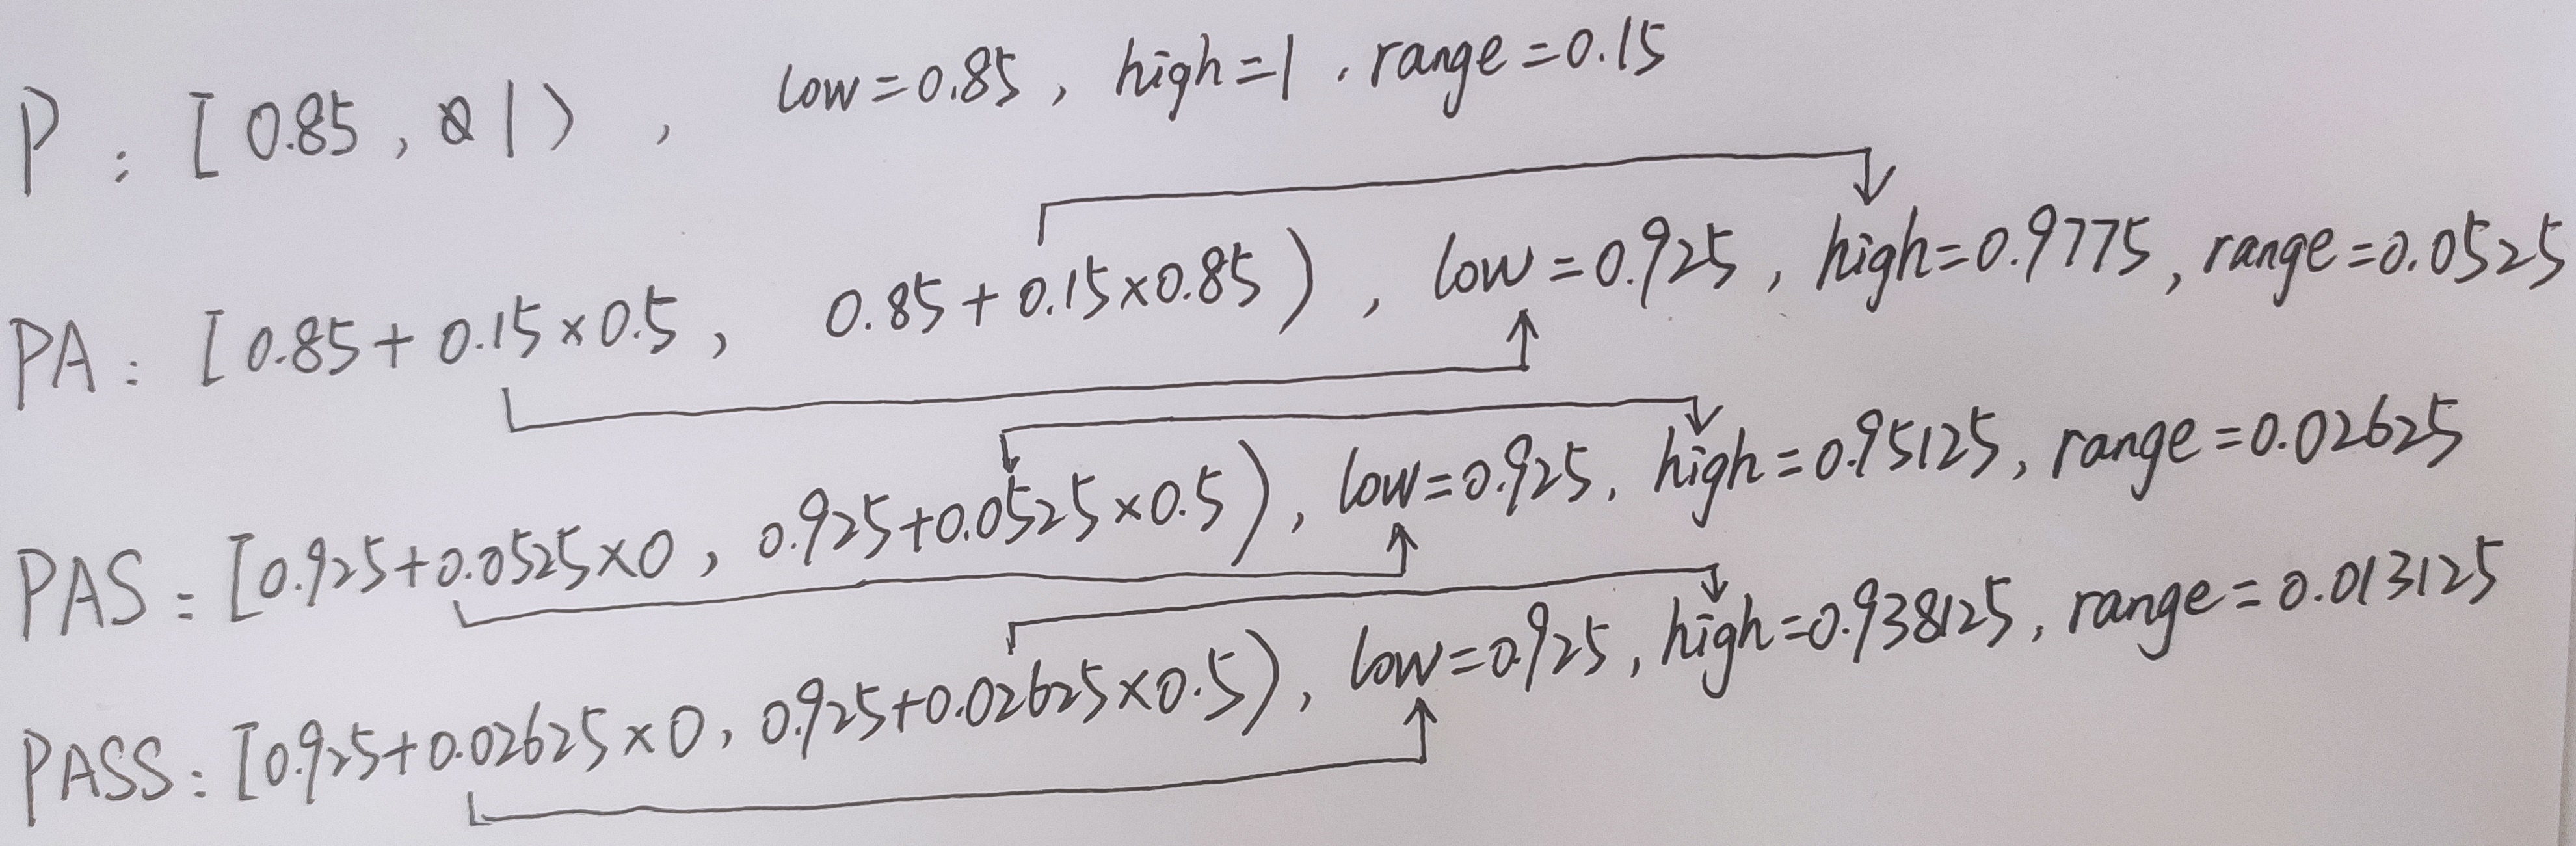 P : [ 0.85 , 1 ) , low=0.85 , high=1 , range=0.15
PA : [ 0.85 + 0.15 × 0.5 , 0.85 + 0.15×0.85 ) , low=0.925 , high=0.9775 , range=0.0525
PAS : [0.925+0.0525×0 , 0.925+0.0525×0.5 ) , low=0.925 , high=0.95125 , range=0.02625
PASS : [0.925+0.02625×0 , 0.925+0.02625×0.5 ) , low=0.925 , high=0.938125 , range=0.013125